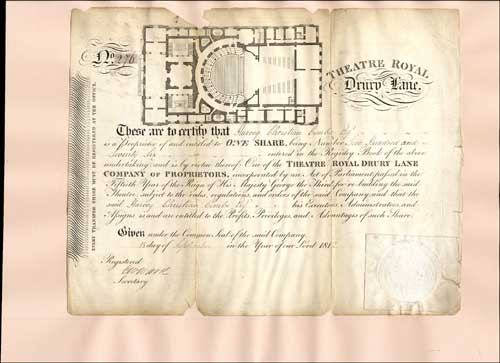 No. 276
THEATRE ROYAL
Drury Lane.
These are to certify that Harvey Christian Combe Esqr.
is a Proprietor of and entitled to ONE SHARE, being Number Two Hundred and
Seventy Six entered in the Registry Book of the above
undertaking, and is by virtue thereof One of the THEATRE ROYAL DRURY LANE
COMPANY OF PROPRIETORS, incorporated by an Act of Parliament passed in the
Fiftieth Year of the Reign of His Majesty George the Third for re building the said
Theatre, subject to the rules, regulations and orders of the said Company, and that the
said Harvey Christian Combe Esqr. his Executors, Administrators and
Assigns is and are entitled to the Profits, Privileges, and Advantages of such Share.
Given under the Common Seal of the said Company.
day of September in the Year of our Lord 181
Registered
Secretary
EVERY TRANSFER HEREOF MUST BE REGISTERED AT THE OFFICE.